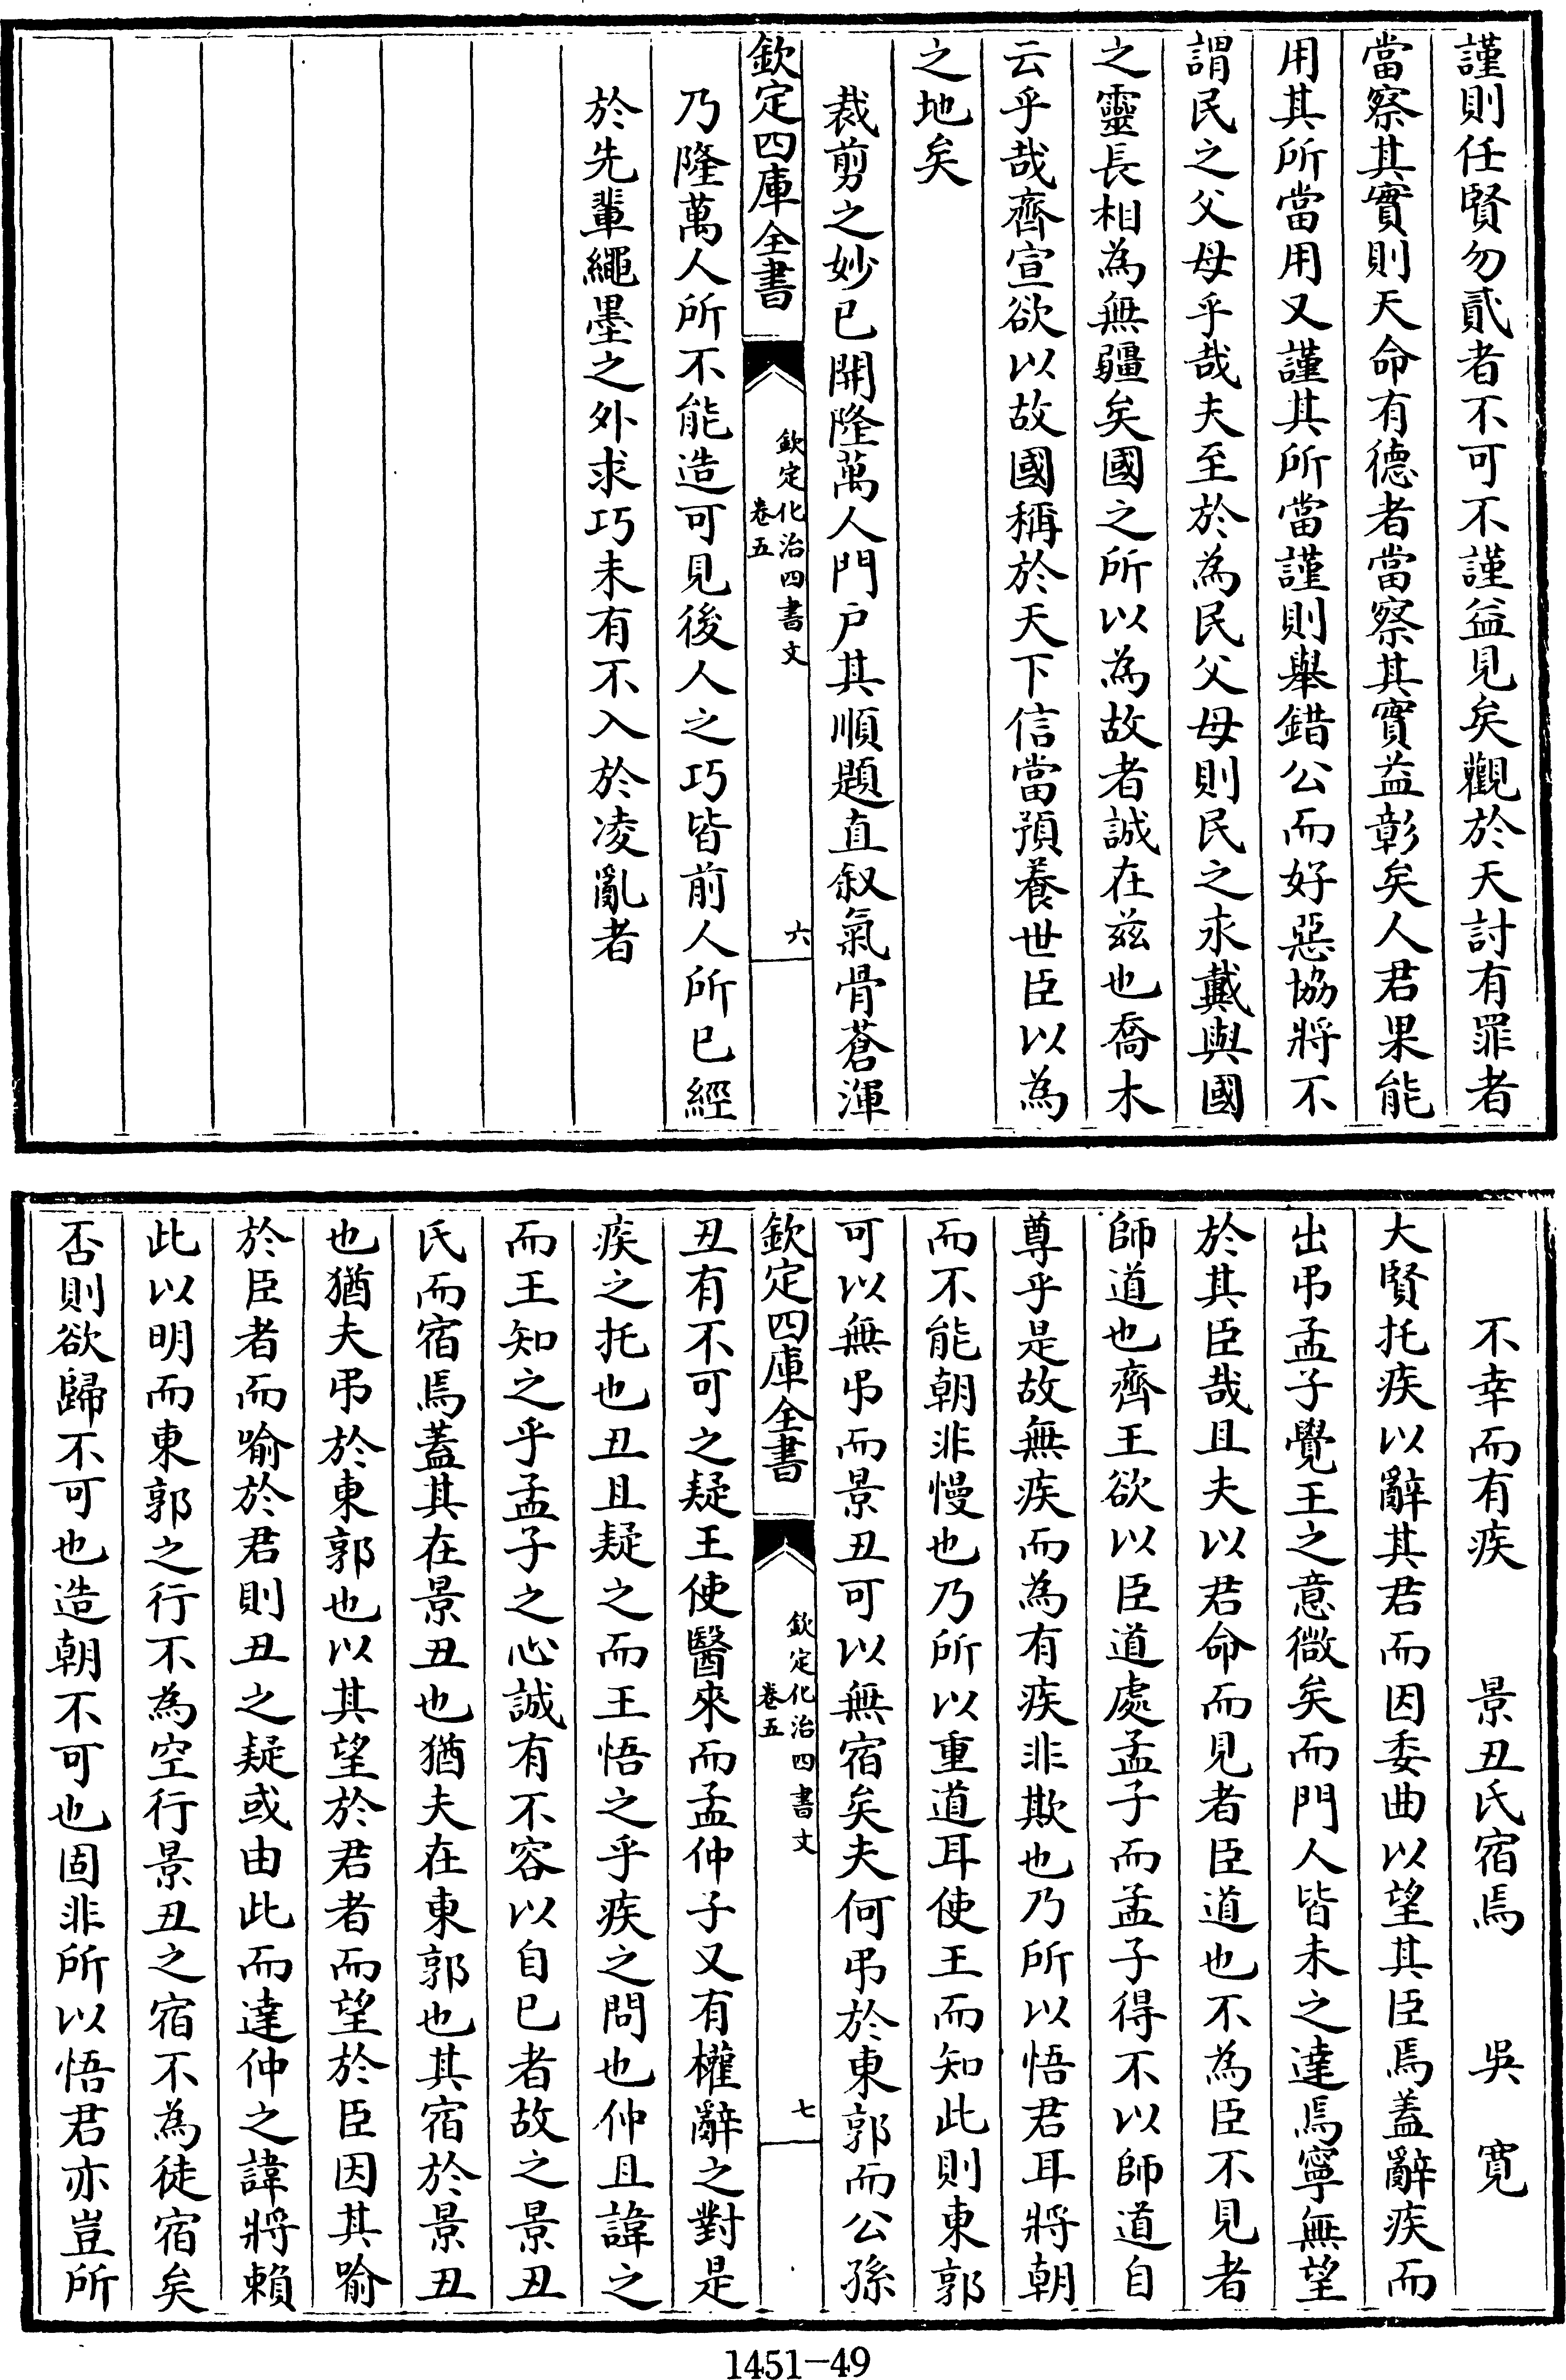 謹則任賢勿貳者不可不謹益見矣觀於天討有罪者
當察其實則天命有德者當察其實益彰矣人君果能
用其所當用又謹其所當謹則舉錯公而好惡協將不
謂民之父母乎哉夫至於為民父母則民之永戴與國
之靈長相為無疆矣國之所以為故者誠在兹也喬木
云乎哉齊宣欲以故國稱於天下信當預養世臣以為
之地矣
裁剪之妙已開隆萬人門户其順題直叙氣骨蒼渾
欽定四庫全書
欽定化治四書文
卷五
六
乃隆萬人所不能造可見後人之巧皆前人所已經
於先輩繩墨之外求巧未有不入於凌亂者
不幸而有疾 景丑氏宿焉 吳寛
大賢托疾以辭其君而因委曲以望其臣焉蓋辭疾而
出弔孟子覺王之意微矣而門人皆未之達焉寧無望
於其臣哉且夫以君命而見者臣道也不為臣不見者
師道也齊王欲以臣道處孟子而孟子得不以師道自
尊乎是故無疾而為有疾非欺也乃所以悟君耳將朝
而不能朝非慢也乃所以重道耳使王而知此則東郭
可以無弔而景丑可以無宿矣夫何弔於東郭而公孫
欽定四庫全書
欽定化治四書文
卷五
七
丑有不可之疑王使醫來而孟仲子又有權辭之對是
疾之托也丑且疑之而王悟之乎疾之問也仲且諱之
而王知之乎孟子之心誠有不容以自已者故之景丑
氏而宿焉蓋其在景丑也猶夫在東郭也其宿於景丑
也猶夫弔於東郭也以其望於君者而望於臣因其喻
於臣者而喻於君則丑之疑或由此而達仲之諱將賴
此以明而東郭之行不為空行景丑之宿不為徒宿矣
否則欲歸不可也造朝不可也固非所以悟君亦豈所
1451-49